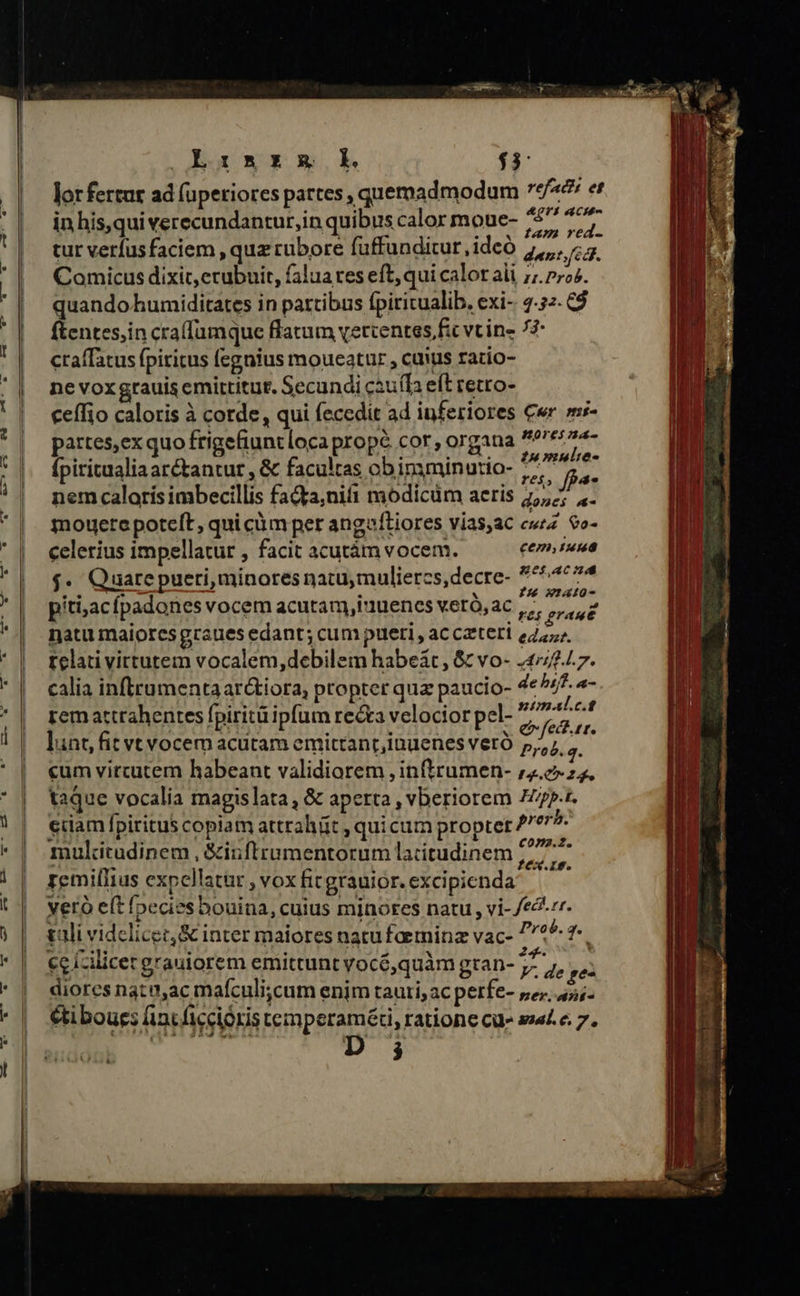 LIBER I. 53
lor fertur ad ſuperiores partes, quemadmodum
in his, qui verecundantur, in quibus calor moue-
tur verſus faciem, quæ rubore ſuffunditur, ideò
Comicus dixit, erubuit, ſalua res eſt, qui calor ali
quando humiditates in partibus ſpiritualib. exi-
ſtentes, in craſſumque flatum vertentes, ſic vt in-
craſſatus ſpiritus ſegnius moueatur, cuius ratio-
ne vox grauis emittitur. Secundi cauſſa eſt retro-
ceſſio caloris à corde, qui ſecedit ad inferiores
partes, ex quo frigefiunt loca propè cor, organa
ſpiritualia arctantur, & facultas ob imminutio-
nem caloris imbecillis facta, niſi modicùm aeris
mouere poteſt, qui cùm per anguſtiores vias, ac
celerius impellatur, facit acutám vocem.
§. Quare pueri, minores natu, mulieres, decre-
piti, ac ſpadones vocem acutam, iuuenes verò, ac
natu maiores graues edant; cum pueri, ac cæteri
relati virtutem vocalem, debilem habeát, & vo-
calia inſtrumenta arctiora, propter quæ paucio-
rem attrahentes ſpiritū ipſum recta velocior pel-
lunt, fit vt vocem acutam emittant, iuuenes verò
cum virtutem habeant validiorem, inſtrumen-
taque vocalia magis lata, & aperta, vberiorem
etiam ſpiritus copiam attrahūt, qui cum propter
multitudinem, & inſtrumentorum latitudinem
remiſſius expellatur, vox fit grauior. excipienda
verò eſt ſpecies bouina, cuius minores natu, vi-
tuli videlicet, & inter maiores natu fœminæ vac-
ce ſcilicet grauiorem emittunt vocé, quàm gran-
diores natu, ac maſculi; cum enim tauri, ac perfe-
cti boues ſint ſiccióris temperaméti, ratione cu-
D 3
refact. et
agri acu-
tam red-
dant. ſect.
11. Prob.
4.32. &
53.
Cur mi-
nores na-
tu mulie-
res, ſpa-
dones a-
cutā vo-
cem, iuue
nes, ac na
tu maio-
res graue
edant.
Ariſt. l. 7.
de hiſt. a-
nimal. c. 1
& ſect. 11.
Prob. 4.
14. & 24.
Hipp. 1.
prorh.
com. 2.
tex. 18.
ſect. 11.
Prob. 4.
24.
5. de ge-
ner. ani-
mal. c. 7.